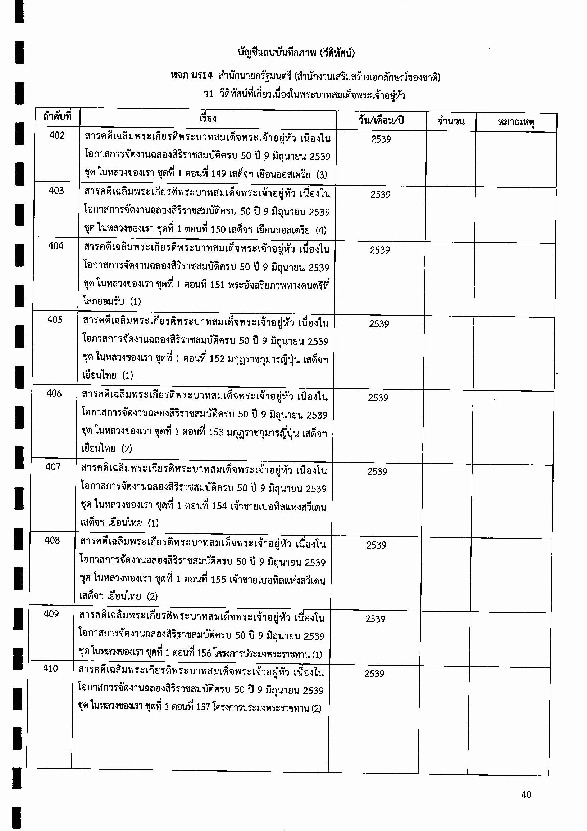 บัญชีแถบบันทึกภาพ (วีดิทัศน์)
หจภ นร14 สำนักนายกรัฐมนตรี (สำนักงานเสริมสร้างเอกลักษณ์ของชาติ)
ว1 วีดิทัศน์ที่เกี่ยวเนื่องในพระบาทสมเด็จพระเจ้าอยู่หัว
ลำดับที่ เรื่อง วัน/เดือน/ปี จำนวน หมายเหตุ
402 สารคดีเฉลิมพระเกียรติพระบาทสมเด็จพระเจ้าอยู่หัว เนื่องใน 2539
โอกาสการจัดงานฉลองสิริราชสมบัติครบ 50 ปี 9 มิถุนายน 2539
ชุด ในหลวงของเรา ชุดที่ 1 ตอนที่ 149 เสด็จฯ เยือนออสเตรีย (3)
403 สารคดีเฉลิมพระเกียรติพระบาทสมเด็จพระเจ้าอยู่หัว เนื่องใน 2539
โอกาสการจัดงานฉลองสิริราชสมบัติครบ 50 ปี 9 มิถุนายน 2539
ชุด ในหลวงของเรา ชุดที่ 1 ตอนที่ 150 เสด็จฯ เยือนออสเตรีย (4)
404 สารคดีเฉลิมพระเกียรติพระบาทสมเด็จพระเจ้าอยู่หัว เนื่องใน 2539
โอกาสการจัดงานฉลองสิริราชสมบัติครบ 50 ปี 9 มิถุนายน 2539
ชุด ในหลวงของเรา ชุดที่ 1 ตอนที่ 151 พระอัจฉริยภาพทางดนตรีที่
โลกยอมรับ (1)
405 สารคดีเฉลิมพระเกียรติพระบาทสมเด็จพระเจ้าอยู่หัว เนื่องใน 2539
โอกาสการจัดงานฉลองสิริราชสมบัติครบ 50 ปี 9 มิถุนายน 2539
ชุด ในหลวงของเรา ชุดที่ 1 ตอนที่ 152 มกุฎราชกุมารญี่ปุ่น เสด็จฯ
เยือนไทย (1)
406 สารคดีเฉลิมพระเกียรติพระบาทสมเด็จพระเจ้าอยู่หัว เนื่องใน 2539
โอกาสการจัดงานฉลองสิริราชสมบัติครบ 50 ปี 9 มิถุนายน 2539
ชุด ในหลวงของเรา ชุดที่ 1 ตอนที่ 153 มกุฎราชกุมารญี่ปุ่น เสด็จฯ
เยือนไทย (2)
407 สารคดีเฉลิมพระเกียรติพระบาทสมเด็จพระเจ้าอยู่หัว เนื่องใน 2539
โอกาสการจัดงานฉลองสิริราชสมบัติครบ 50 ปี 9 มิถุนายน 2539
ชุด ในหลวงของเรา ชุดที่ 1 ตอนที่ 154 เจ้าชายเบอทิลแห่งสวีเดน
เสด็จฯ เยือนไทย (1)
408 สารคดีเฉลิมพระเกียรติพระบาทสมเด็จพระเจ้าอยู่หัว เนื่องใน 2539
โอกาสการจัดงานฉลองสิริราชสมบัติครบ 50 ปี 9 มิถุนายน 2539
ชุด ในหลวงของเรา ชุดที่ 1 ตอนที่ 155 เจ้าชายเบอทิลแห่งสวีเดน
เสด็จฯ เยือนไทย (2)
409 สารคดีเฉลิมพระเกียรติพระบาทสมเด็จพระเจ้าอยู่หัว เนื่องใน 2539
โอกาสการจัดงานฉลองสิริราชสมบัติครบ 50 ปี 9 มิถุนายน 2539
ชุด ในหลวงของเรา ชุดที่ 1 ตอนที่ 156 โครงการประมงพระราชทาน (1)
410 สารคดีเฉลิมพระเกียรติพระบาทสมเด็จพระเจ้าอยู่หัว เนื่องใน 2539
โอกาสการจัดงานฉลองสิริราชสมบัติครบ 50 ปี 9 มิถุนายน 2539
ชุด ในหลวงของเรา ชุดที่ 1 ตอนที่ 157 โครงการประมงพระราชทาน (2)
40